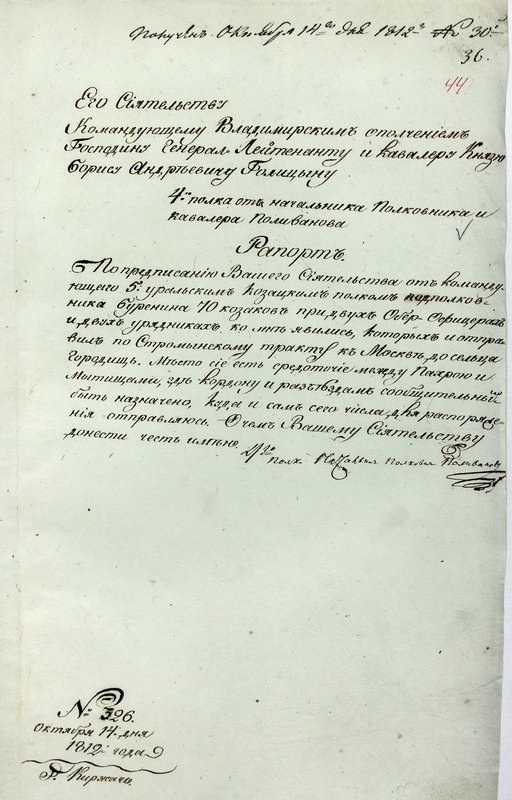 Получен Октября 14го дня 1812го № 30й
36.
44
Его Сіятельству
Командующему Владимирскимъ ополченіемъ
Господину Генералъ-Лейтенанту и кавалеру Князю
Борису Андрѣевичу Голицыну
4го полка отъ начальника Полковника и
кавалера Поливанова
Рапортъ
По предписанію Вашего Сіятельства отъ команду-
ющего 5м уральскимъ козацкимъ полкомъ подполков-
ника Буренина 70 козаковъ при двухъ Обер-Офицерахъ
и двухъ урядникахъ, ко мнѣ явились, которыхъ и отпра-
вилъ по Стромынскому тракту къ Москвѣ до сельца
Городищъ. Мѣсто сіе есть средоточіе между Пахрою и
Мытищами, гдѣ кордону и разъѣздамъ сообщительный
быть назначено, куда и самъ сего числа для распоряже-
нія отправляюсь. О чемъ Вашему Сіятельству
донести честь имѣю.
4го полк. Начальник Полковник Поливановъ
№ 326.
Октября 14 дня
1812 года
Г. Киржачь